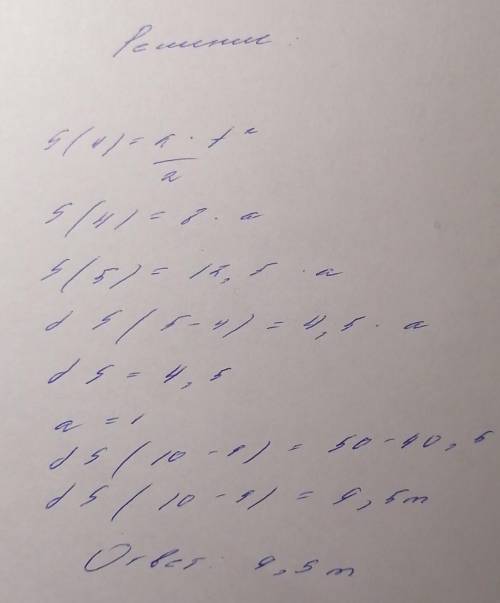 Решение:
S(t) = a · t²
2
S(4) = 8 · a
S(5) = 12,5 · a
dS(5-4) = 4,5 · a
dS = 4,5
a = 1
dS(10-9) = 50-40,5
dS(10-9) = 9,5m
Ответ: 9,5m